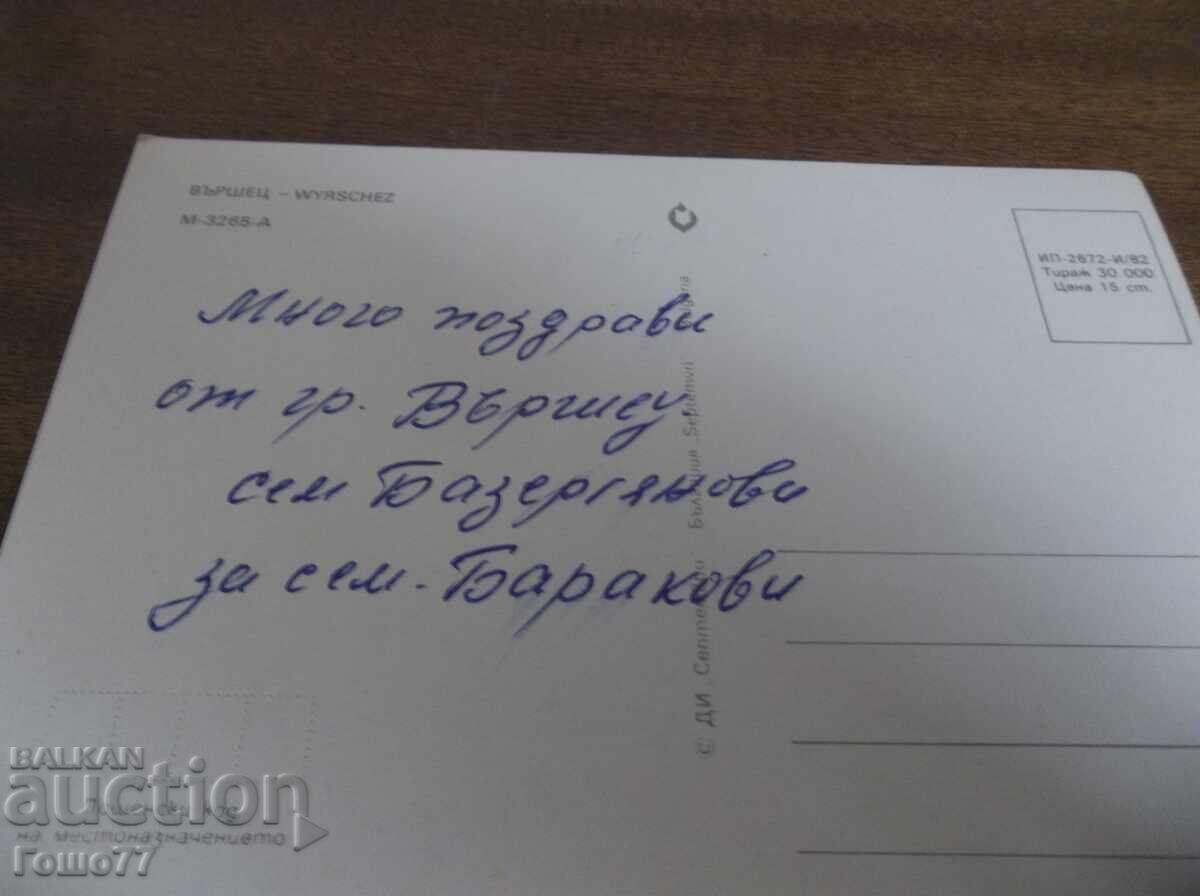 ВЪРШЕЦ – WYRSCHEZ
М-3265-А
ИП-2672-И/82
Тираж 30 000
Цена 15 ст.
Много поздрави
от гр. Вършец
сем Базергянови
за сем. Баракови
© ДИ „Септември България Septemvri
Пощенски код
на местоназначението
BALKAN
auction
Гошо77